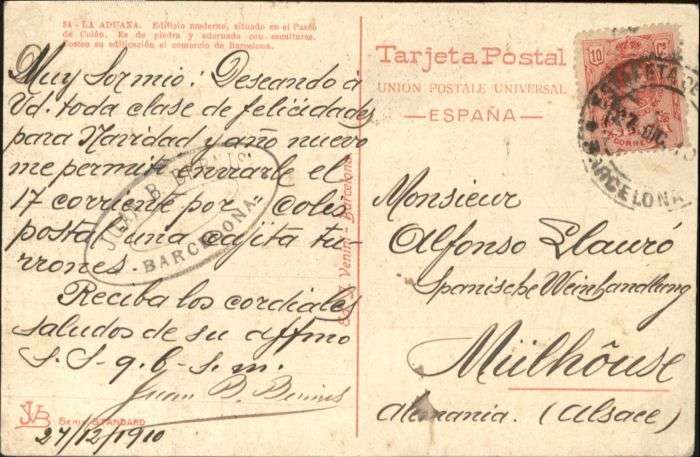 84 - LA ADUANA. Edificio moderno, situado en el Paseo
de Colón. Es de piedra y adornada con esculturas.
Costeó su edificación el comercio de Barcelona.
Muy Sr mio: Deseando á
Vd. toda clase de felicidades
para Navidad y año nuevo
me permití enviarle el
17 corriente por coles
postal una cajita tu-
rrones.
Reciba los cordiales
saludos de su affmo
S. S. q. b. s. m.
Juan B.
27/12/1910
JUAN B.
- BARCELONA -
JVB
Serie STANDARD
Venini - Barcelona
Tarjeta Postal
UNIÓN POSTALE UNIVERSAL
— ESPAÑA —
10 Cs
CORREOS
BARCELONA
Monsieur
Alfonso Llauró
Spanische Weinhandlung
Mülhôuse
Alemania. (Alsace)